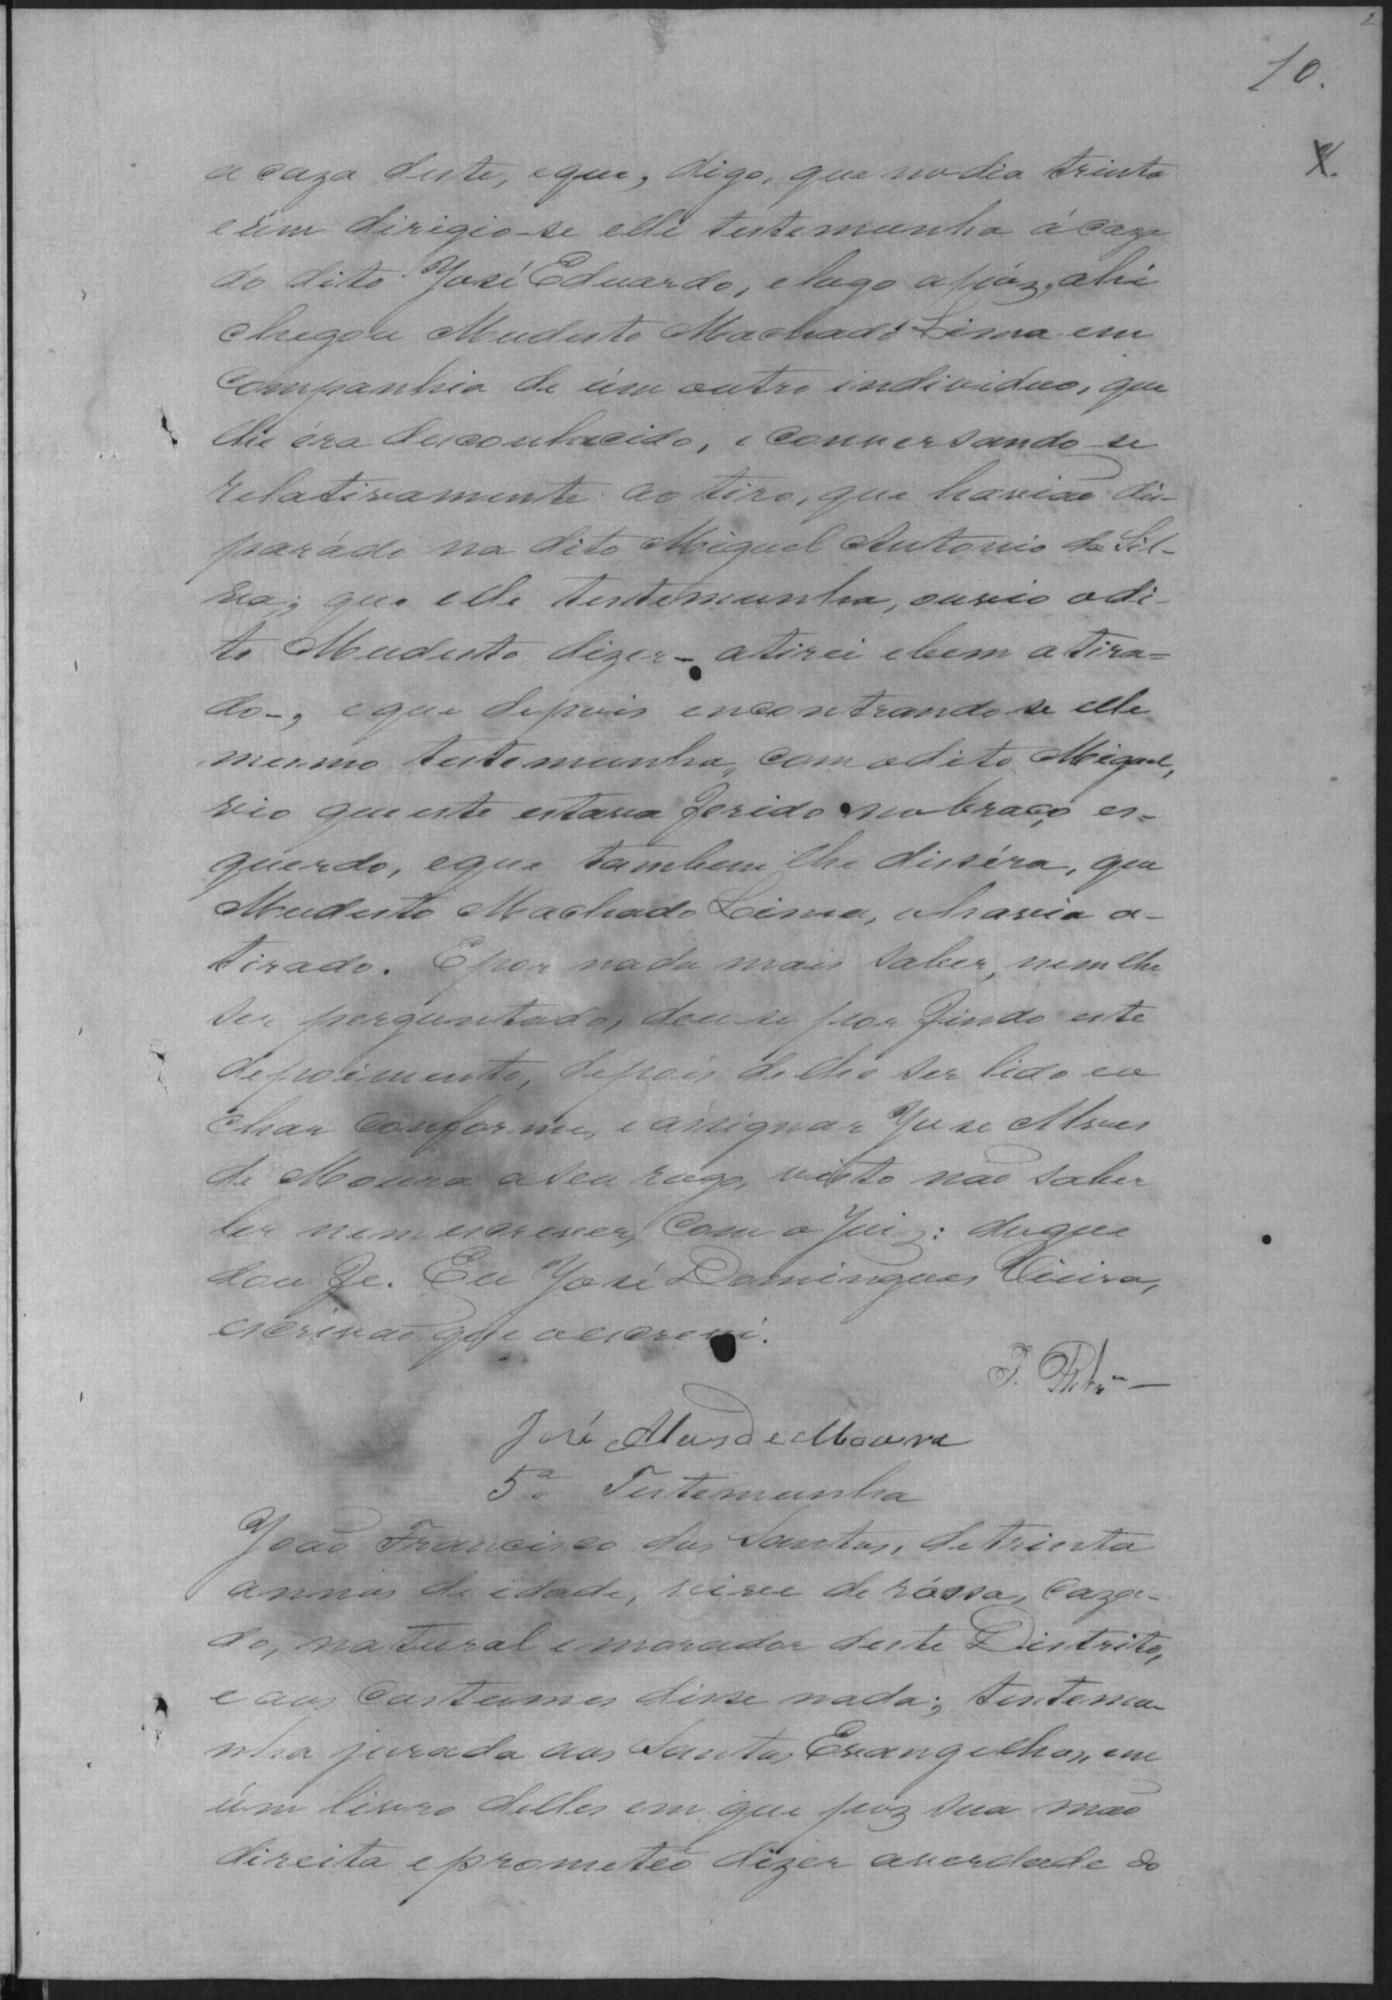 10.
X.
a caza deste, eque, digo, que no dia trinta
e úm dirigio-se elle testemunha á caza
do dito José Eduardo, e logo apóz, ahi
chegou Mudesto Machado Lima em
companhia de úm outro individuo, que
lhe éra desconhecido, e conversando-se
relativamente ao tiro, que havião dis-
parádo na dito Miguel Antonio da Sil-
va; que elle testemunha, ouvio o di-
to Mudesto dizer - atirei e bem atira=
do -, e que depois encontrando-se elle
mesmo testemunha, com o dito Miguel,
vio que este estava ferido no braço es-
querdo, e que tambem lhe disséra, que
Mudesto Machado Lima, o havia a-
tirado. E por nada mais saber, nem lhe
ser perguntado, deu-se por findo este
depoimento, depois de lhe ser lido e a
char conforme, e assignar José Alves
de Moura a seu rogo, visto não saber
ler nem escrever, com o Juiz: do que
dou fe. Eu José Domingues Vieira,
escrivão que o escreví.
José Alves de Moura
5ª Testemunha
João Francisco dos Santos, de trinta
annos de idade, vive de róssa, caza-
do, natural e morador deste Distrito,
e aos custumes disse nada; testemu-
nha jurada aos Santos Evangelhos, em
úm livro delles em que poz sua mão
direita e prometeo dizer a verdade do